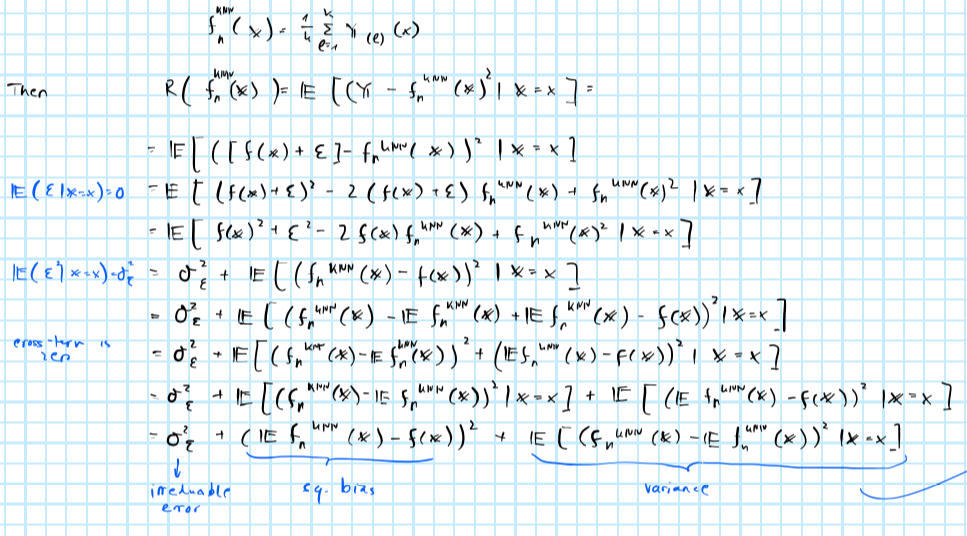 f_n^{KNN}(x) = \frac{1}{k} \sum_{\ell=1}^{k} Y_{(\ell)}(x)
Then R( f_n^{KNN}(x) ) = 𝔼 [ (Y - f_n^{KNN}(x)^2 | X = x ] =
= 𝔼 [ ( [ f(x) + ε ] - f_n^{KNN}(x) )^2 | X = x ]
𝔼(ε | X = x) = 0 = 𝔼 [ (f(x) + ε)^2 - 2 (f(x) + ε) f_n^{KNN}(x) + f_n^{KNN}(x)^2 | X = x ]
= 𝔼 [ f(x)^2 + ε^2 - 2 f(x) f_n^{KNN}(x) + f_n^{KNN}(x)^2 | X = x ]
𝔼(ε^2 | X = x) = σ_ε^2 = σ_ε^2 + 𝔼 [ (f_n^{KNN}(x) - f(x))^2 | X = x ]
= σ_ε^2 + 𝔼 [ (f_n^{KNN}(x) - 𝔼 f_n^{KNN}(x) + 𝔼 f_n^{KNN}(x) - f(x))^2 | X = x ]
cross-term is zero = σ_ε^2 + 𝔼 [ (f_n^{KNN}(x) - 𝔼 f_n^{KNN}(x))^2 + (𝔼 f_n^{KNN}(x) - f(x))^2 | X = x ]
= σ_ε^2 + 𝔼 [ (f_n^{KNN}(x) - 𝔼 f_n^{KNN}(x))^2 | X = x ] + 𝔼 [ (𝔼 f_n^{KNN}(x) - f(x))^2 | X = x ]
= σ_ε^2 + (𝔼 f_n^{KNN}(x) - f(x))^2 + 𝔼 [ (f_n^{KNN}(x) - 𝔼 f_n^{KNN}(x))^2 | X = x ]
irreduable error sq. bias variance